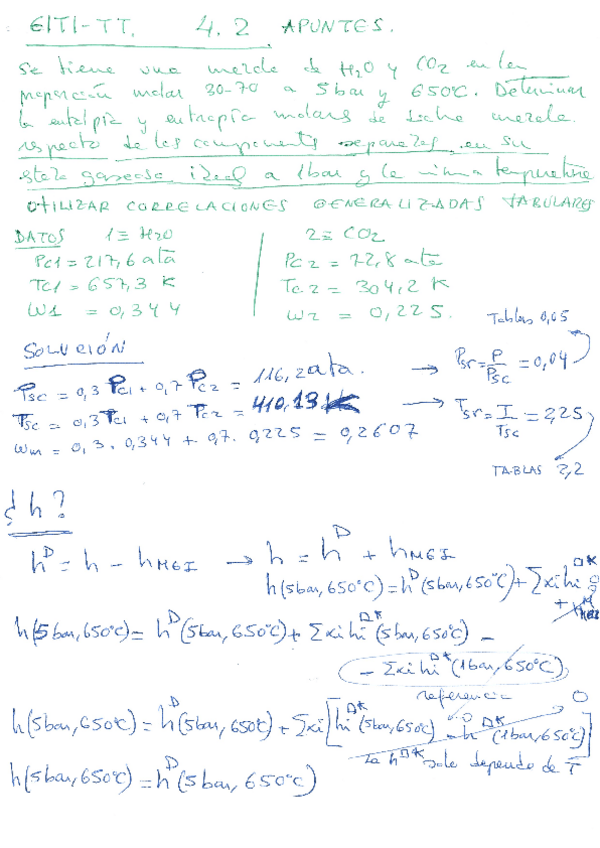 EITI-TT. 4.2 APUNTES.
Se tiene una mezcla de H2O y CO2 en la
proporción molar 30-70 a 5bar y 650ºC. Determinar
la entalpía y entropía molares de dicha mezcla
respecto de los componentes separados, en su
estado gaseoso ideal a 1bar y la misma temperatura
UTILIZAR CORRELACIONES GENERALIZADAS TABULARES
DATOS 1≡ H2O
PC1 = 217,6 ata
TC1 = 657,3 K
W1 = 0,344
2≡ CO2
PC2 = 72,8 ata
TC2 = 304,2 K
W2 = 0,225.
SOLUCIÓN
Tablas 0,05
Psc = 0,3 PC1 + 0,7 PC2 = 116,2 ata. → Psr = P/Psc = 0,04
Tsc = 0,3 TC1 + 0,7 TC2 = 410,13 K → Tsr = T/Tsc = 2,25
Wm = 0,3 . 0,344 + 0,7 . 0,225 = 0,2607
TABLAS 2,2
¿h?
h^D = h - hMGI → h = h^D + hMGI
h(5bar,650ºC) = h^D(5bar,650ºC) + Σxi hi^□*
h(5bar,650ºC) = h^D(5bar,650ºC) + Σxi hi^□*(5bar,650ºC) -
- Σxi hi^□*(1bar,650ºC)
referencia
h(5bar,650ºC) = h^D(5bar,650ºC) + Σxi [hi^□*(5bar,650ºC) - h^□*(1bar,650ºC)] 0
La h^□* solo depende de T
h(5bar,650ºC) = h^D(5bar, 650ºC)